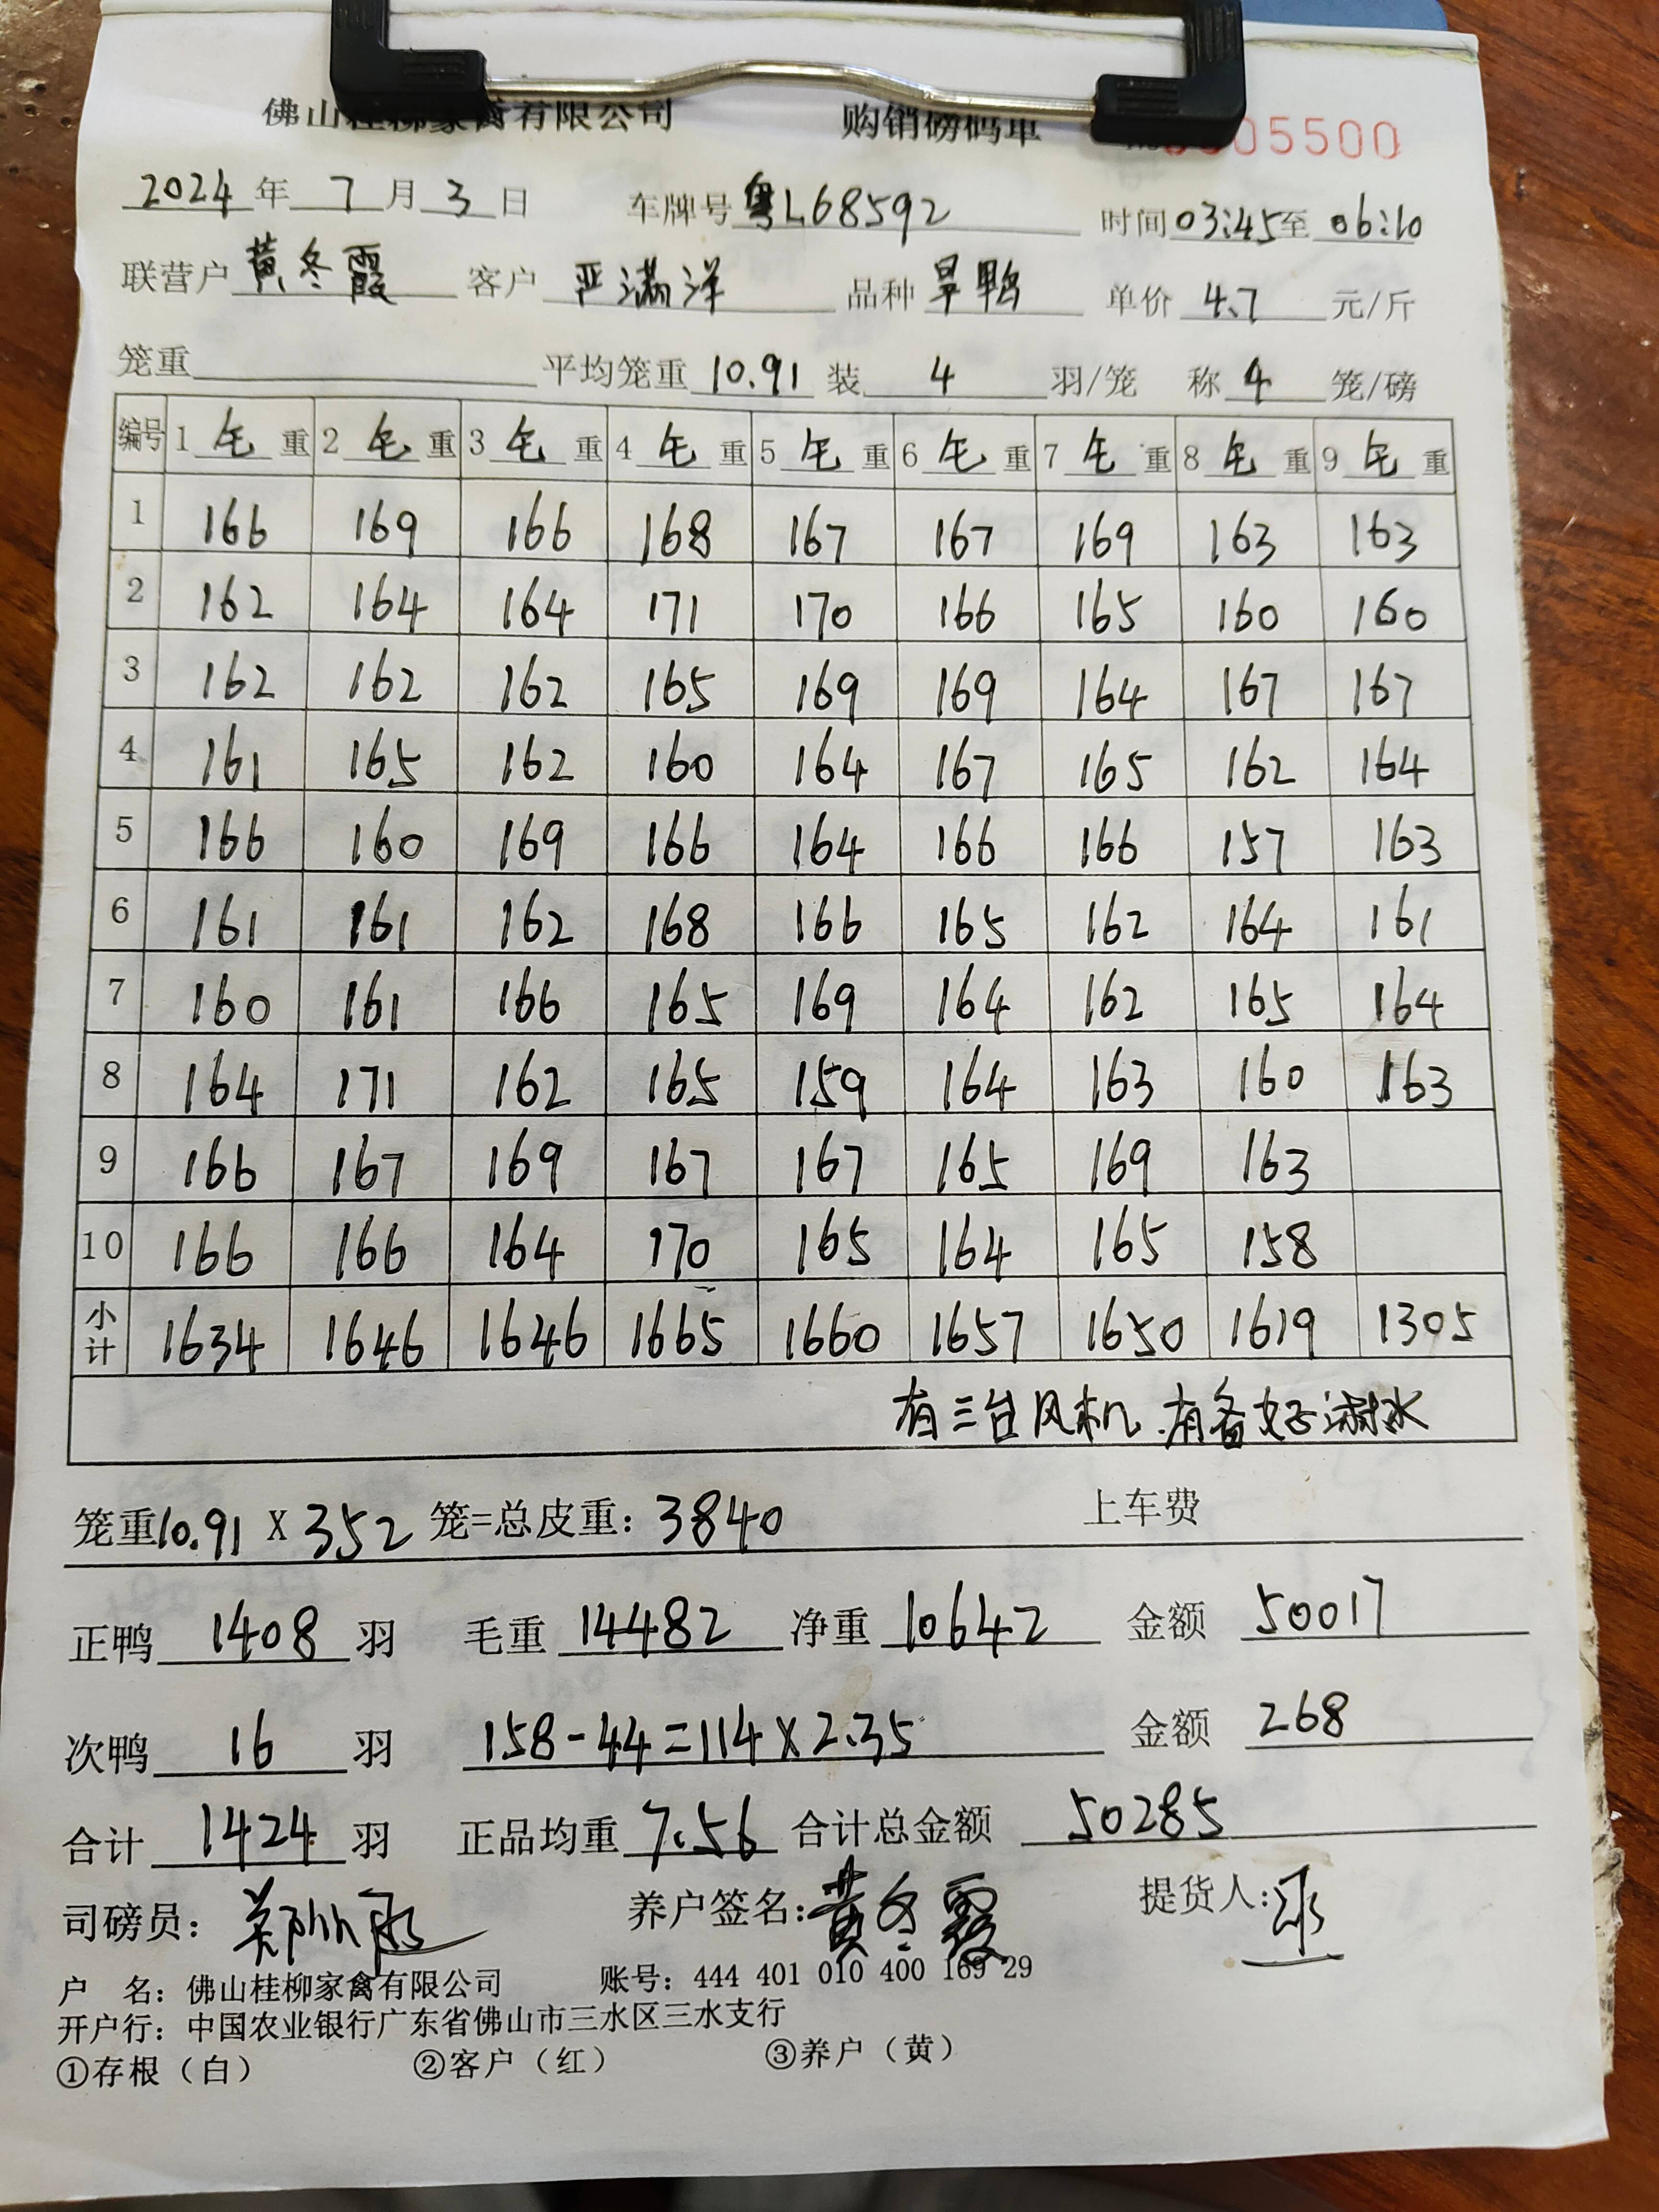 佛山桂柳家禽有限公司 购销磅码单 05500
2024年7月3日 车牌号粤L68592 时间03:45至06:10
联营户黄冬霞 客户严满洋 品种旱鸭 单价4.7元/斤
笼重 平均笼重10.91装4羽/笼 称4笼/磅
编号 1毛重 2毛重 3毛重 4毛重 5毛重 6毛重 7毛重 8毛重 9毛重
1 166 169 166 168 167 167 169 163 163
2 162 164 164 171 170 166 165 160 160
3 162 162 162 165 169 169 164 167 167
4 161 165 162 160 164 167 165 162 164
5 166 160 169 166 164 166 166 157 163
6 161 161 162 168 166 165 162 164 161
7 160 161 166 165 169 164 162 165 164
8 164 171 162 165 159 164 163 160 163
9 166 167 169 167 167 165 169 163
10 166 166 164 170 165 164 165 158
小计 1634 1646 1646 1665 1660 1657 1650 1619 1305
有三台风机.有备好淋水
笼重10.91X352笼=总皮重:3840 上车费
正鸭1408羽 毛重14482净重10642 金额50017
次鸭16羽 158-44=114×2.35 金额268
合计1424羽 正品均重7.56合计总金额50285
司磅员: 养户签名:黄冬霞 提货人:
户 名:佛山桂柳家禽有限公司 账号:444 401 010 400 169 29
开户行:中国农业银行广东省佛山市三水区三水支行
①存根(白) ②客户(红) ③养户(黄)